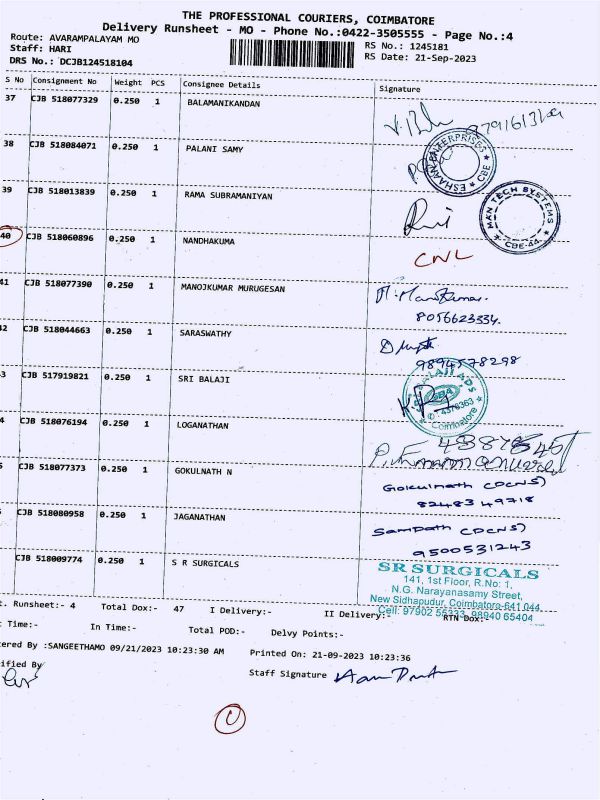 THE PROFESSIONAL COURIERS, COIMBATORE
Delivery Runsheet - MO - Phone No.:0422-3505555 - Page No.:4
Route: AVARAMPALAYAM MO
RS No.: 1245181
Staff: HARI
RS Date: 21-Sep-2023
DRS No.: DCJB124518104
S No Consignment No Weight PCS Consignee Details Signature
37 CJB 518077329 0.250 1 BALAMANIKANDAN
38 CJB 518084071 0.250 1 PALANI SAMY
ESHAAN ENTERPRISES CBE
39 CJB 518013839 0.250 1 RAMA SUBRAMANIYAN
MAN TECH SYSTEMS CBE-44.
40 CJB 518060896 0.250 1 NANDHAKUMA
CNL
41 CJB 518077390 1 0.250 MANOJKUMAR MURUGESAN
8056623334.
2 CJB 518044663 0.250 1 SARASWATHY
9894578298
3 CJB 517919821 0.250 1 SRI BALAJI
Coimbatore
4 CJB 518076194 0.250 1 LOGANATHAN
CJB 518077373 0.250 1 GOKULNATH N
Gokulnath (DCNS)
82483 49718
CJB 518080958 0.250 1 JAGANATHAN
Sampath (DCNS)
9500531243
CJB 518009774 0.250 1 S R SURGICALS
SR SURGICALS
141, 1st Floor, R.No: 1,
N.G. Narayanasamy Street,
New Sidhapudur, Coimbatore-641 044.
Cell: 97902 55333, 98940 65404
t. Runsheet:- 4 Total Dox:- 47 I Delivery:- II Delivery:- RTN Dox:-
Time:- In Time:- Total POD:- Delvy Points:-
ered By :SANGEETHAMO 09/21/2023 10:23:30 AM Printed On: 21-09-2023 10:23:36
ified By Staff Signature